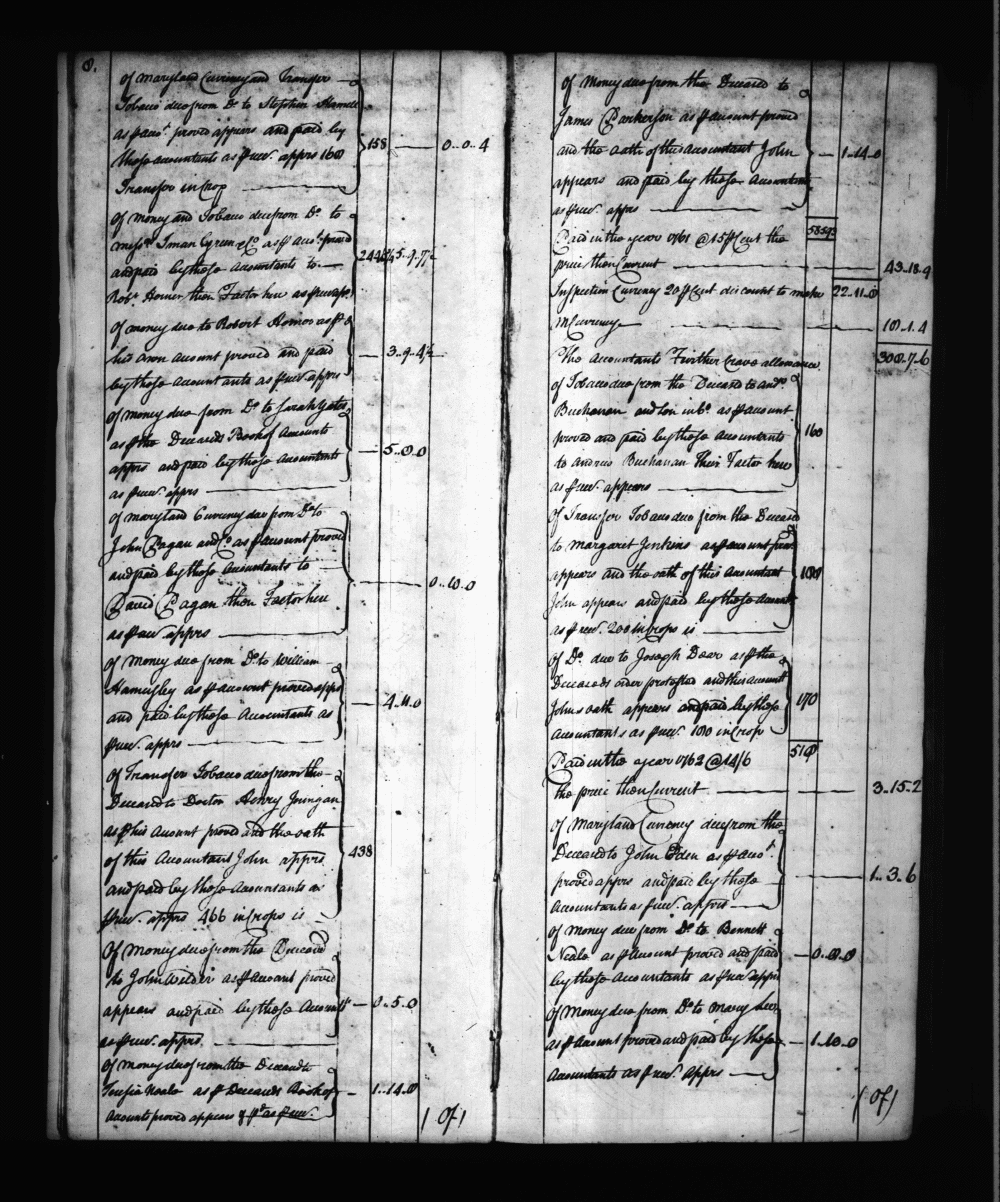 8.
of Maryland Currency and Transfer
Tobacco due from Do. to Stephen
as p acct. proved appears and paid by
those accountants as p rect. apprs 168 158 — 0..0..4
Transfer in Crop —
of money and Tobacco due from Do. to
Messrs. & Co. as p acct. proved
and paid by those Accountants to —
Robt. Horner then Factor here as p rect. apprs.
of money due to Robert Horner as p
his own account proved and paid — 3..9..4½
by those accountants as p rect. apprs
of money due from Do. to Sarah Yates
as p the Deceaseds Book of Accounts
apprs and paid by those Accountants — 5..0..0
as p rect. apprs —
of Maryland Currency due from Do. to
John Pagan and Co. as p account proved
and paid by those Accountants to — 0..10..0
David Pagan then Factor here
as p rect. apprs —
of Money due from Do. to William
Hamersley as p account proved apprs
and paid by those Accountants as — 4..11..0
p rect. apprs —
of Transfer Tobacco due from the
Deceased to Doctor Henry
as p his Account proved and the oath
of this Accountant John apprs 438
and paid by those Accountants as
p rect. apprs 466 in Crops is —
Of Money due from the Deceased
to John Wilder as p Account proved
appears and paid by those Accounts — 0..5..0
as p rect. apprs. —
of money due from the Deceased to
Neale as p Deceaseds Book of — 1..14..0
Accounts proved appears & pd. as p rect.
( of )
of Money due from the Deceased to
James Parkerson as p account proved
and the oath of this Accountant John — 1..14..0
appears and paid by those Accountants
as p rect. apprs —
Paid in the year 1761 @ 15 p Cent the
price then Current — 43..18..9
Inspection Currency 20 p Cent discount to make 22..11..8
M Currency — 18..1..4
The Accountants Further Crave allowance 308..7..6
of Tobacco due from the Deceased to Andw.
Buchanan and Son in Co. as p account
proved and paid by those Accountants 160
to Andrew Buchanan their Factor here
as p rect. appears —
of Transfer Tobacco due from the Deceased
to Margaret Jenkins as p account proved
appears and the oath of this Accountant 188
John appears and paid by those Accounts
as p rect. 200 in Crops is —
of Do. due to Joseph Dear as p the
Deceaseds order protested and this account
Johns oath appears and paid by those 170
Accountants as p rect. 180 in Crop
518
Paid in the year 1762 @ 14/6
the price then Current — 3..15..2
of Maryland Currency due from the
Deceased to John Eden as p acct.
proved apprs and paid by those — 1..3..6
Accountants as p rect. apprs —
of money due from Do. to Bennett
Neale as p Account proved and paid — 0..8..0
by those Accountants as p rect. apprs
of Money due from Do. to Mary
as p Account proved and paid by those — 1..10..0
Accountants as p rect. Apprs —
( of )